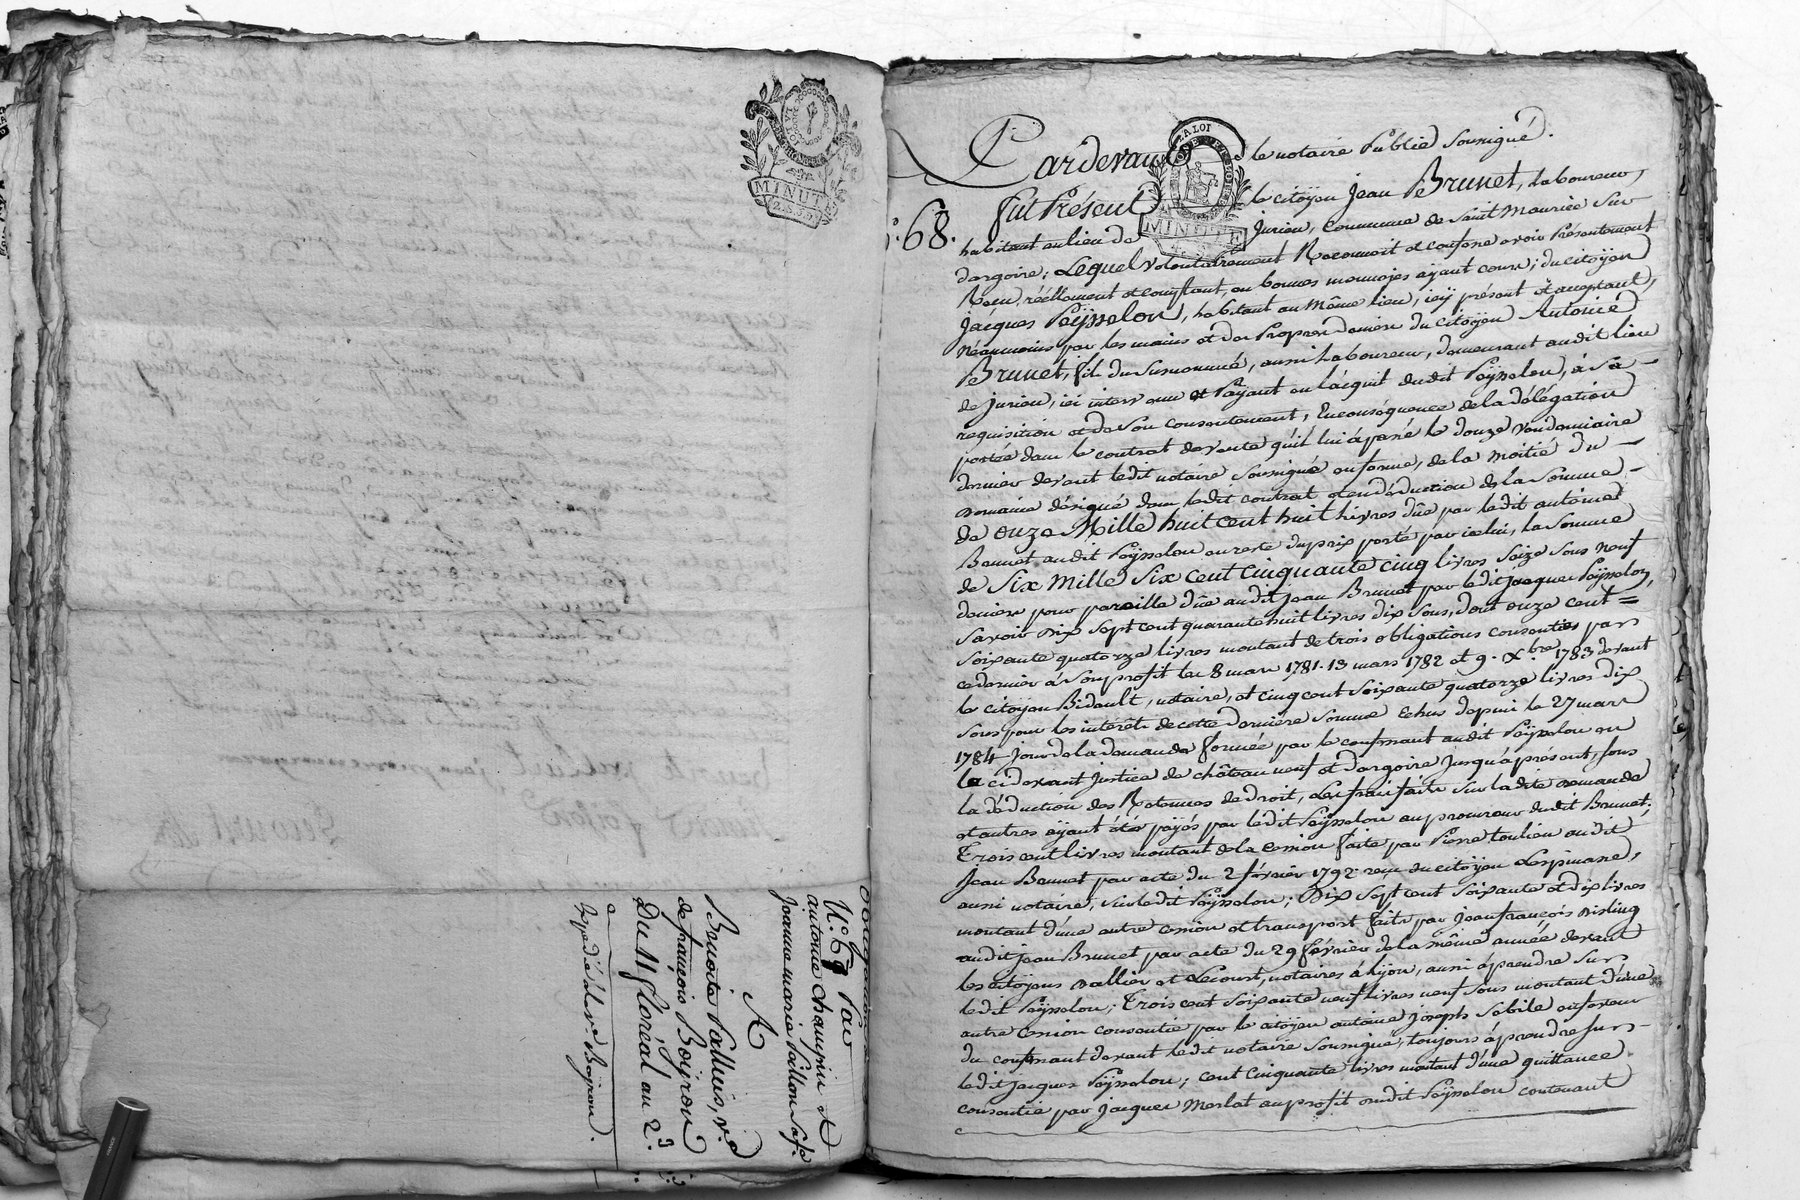 MINUTE
2. SOUS
Obligation
N.° 67 Par
antoine champin et
jeanne marie Paillon sa fe.
A
Benoite Palluis, v.e
de françois Boiron
Du 11 floréal an 2.e
Expedié à la v.e Boiron.
LA LOI
MINUTE
Pardevant le notaire Public Soussigné.
N.° 68.
fut Présent le citoyen Jean Brunet, laboureur,
habitant au lieu de Jurieu, Commune de Saint Maurice Sur
dargoire; Lequel volontairement Reconnoit et confesse avoir Présentement
Reçu, réellement et comptant, en bonnes monnoies ayant cours; du citoyen
Jacques Peÿsselon, habitant au Même lieu, icy présent et acceptant,
Néanmoins par les mains et des Propres deniers du citoyen Antoine
Brunet, fils du Susnommé, aussi laboureur, demeurant audit lieu
de Jurieu, ici intervenu et Payant en l'acquit dudit Peÿsselon, à Sa
requisition et de Son consentement, En conséquence de la délégation
portée dans le contrat de vente qu'il lui à passé le douze vendemiaire
dernier devant ledit notaire Soussigné en forme, de la moitié du
Domaine désigné dans ledit contrat et en déduction de la Somme
de onze Mille huit cent huit Livres dûe par ledit antoine
Brunet audit Peÿsselon en reste du prix porté par icelui, la Somme
de Six Mille Six cent Cinquante cinq livres Seize Sous Neuf
deniers pour pareille dûe audit Jean Brunet par ledit Jacques Peÿsselon,
Savoir Dix Sept cent quarante huit livres dix Sous, dont onze cent
Soixante quatorze livres montant de trois obligations consenties par
ce dernier à Son profit les 8 mars 1781. 13 mars 1782 et 9. Xbre 1783 devant
le citoyen Bidault, notaire, et cinq cent Soixante quatorze livres dix
Sous pour les intérêts de cette dernière Somme Echus depuis le 27 mars
1784 Jour de la demande formée par le confessant audit Peÿsselon en
la cidevant Justice de châteauneuf et dargoire Jusqu'à présent, sous
la déduction des Retenues de droit, Les frais faits Sur ladite demande
et autres ayant étés payés par ledit Peÿsselon au procureur dudit Brunet;
Trois cent livres montant de la Cession faite par Pierre toulieu audit
Jean Brunet par acte du 2 février 1792. reçu du citoyen Lespinasse,
aussi notaire, Sur ledit Peÿsselon; Dix Sept cent Soixante et dix livres
montant d'une autre cession et transport faits par Jean françois Disling
audit Jean Brunet par acte du 29 février de la même année devant
les citoyens Dallier et Lecourt, notaires à Lyon, aussi à prendre Sur
ledit Peÿsselon; Trois cent Soixante neuf livres neuf Sous montant d'une
autre Cession consentie par le citoyen antoine Joseph Sabile en faveur
du confessant devant ledit notaire Soussigné, toujours à prendre Sur
ledit Jacques Peÿsselon; cent Cinquante livres montant d'une quittance
consentie par Jacques Merlat au profit dudit Peÿsselon contenant